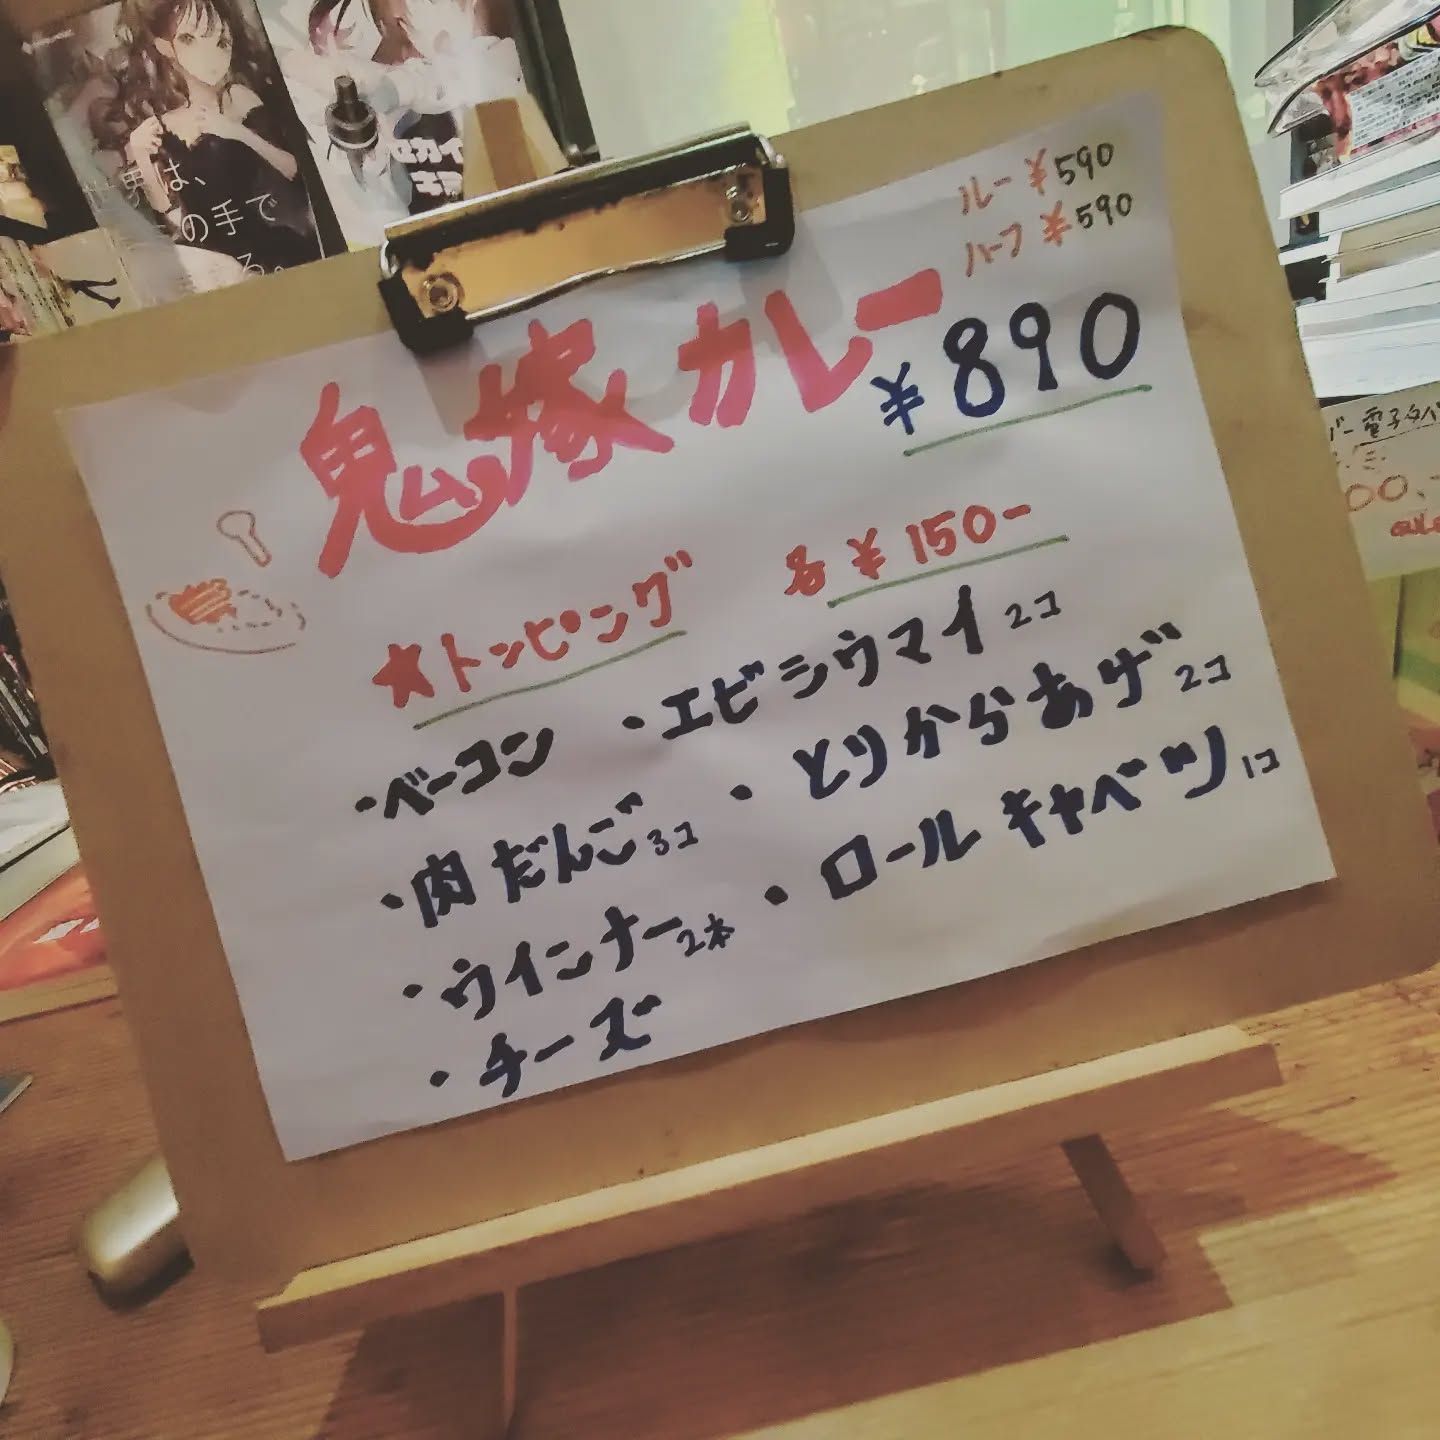 世界は、
の手で
ルー ¥590
ハーフ ¥590
鬼塚カレー ¥890
★トッピング 各¥150-
・ベーコン ・エビシウマイ2コ
・肉だんご3コ ・とりからあげ2コ
・ウインナー2本 ・ロールキャベツ1コ
・チーズ
電子タバ